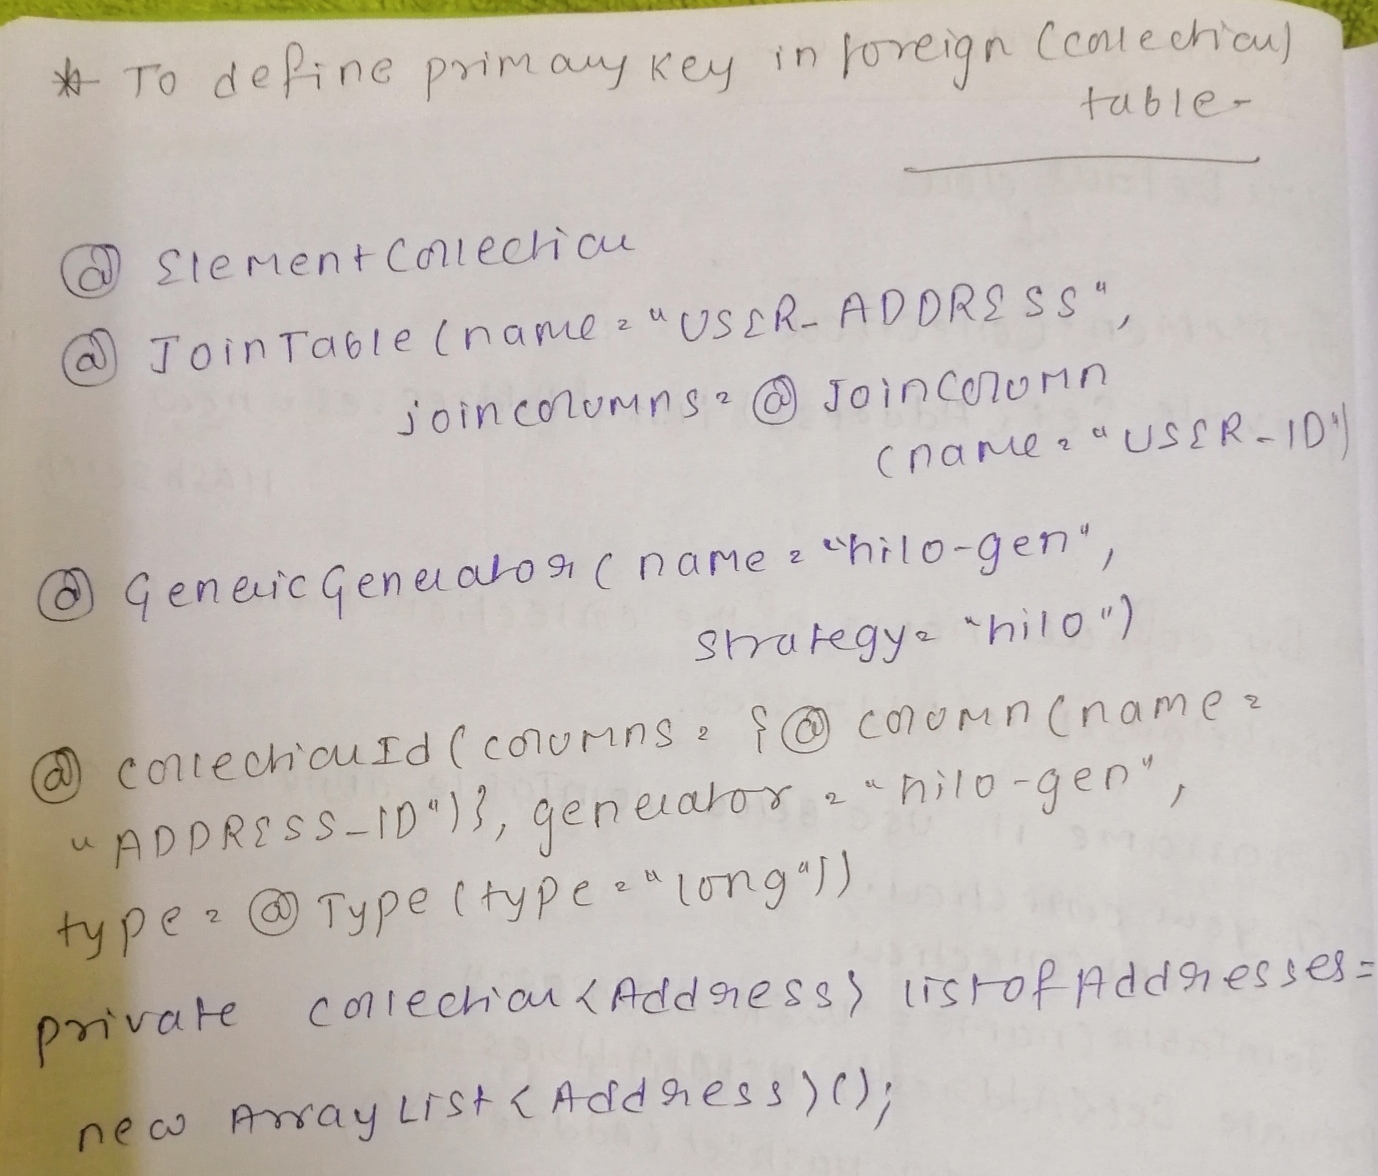 * To define primary key in foreign (collection)
table-
@ ElementCollection
@ JoinTable (name = "USER_ADDRESS",
joincolumns = @ JoinColumn
(name = "USER_ID")
@ GenericGenerator ( name = "hilo-gen",
strategy = "hilo")
@ collectionId ( columns = {@ column (name =
"ADDRESS_ID")}, generator = "hilo-gen",
type = @ Type (type = "long"))
private collection <Address> listofAddresses =
new ArrayList <Address> ();